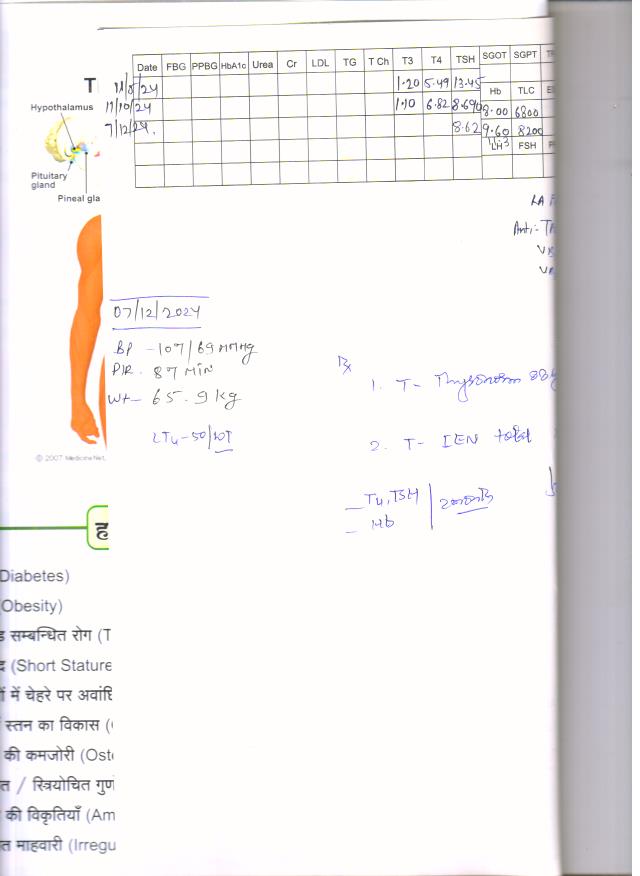 Date FBG PPBG HbA1c Urea Cr LDL TG T Ch T3 T4 TSH SGOT SGPT
11/8/24 1.20 5.49 13.45
Hb TLC
11/10/24 1.10 6.82 8.690 8.00 6800
7/12/24. 8.62 9.60 8200
LH FSH
Hypothalamus
Pituitary
gland
Pineal gla
Anti-
07/12/2024
BP - 107/69 MMHg
P/R. 87 MIN
Wt- 65.9 kg
LT4-50/10T
Rx
1. T- Thyronorm 88
2. T- IEN total
- T4, TSH
- Hb
© 2007 MedicineNet,
ह
Diabetes)
Obesity)
सम्बन्धित रोग (T
(Short Stature
में चेहरे पर अवांछि
स्तन का विकास (
की कमजोरी (Oste
त / स्त्रियोचित गुण
की विकृतियाँ (Am
त माहवारी (Irregu